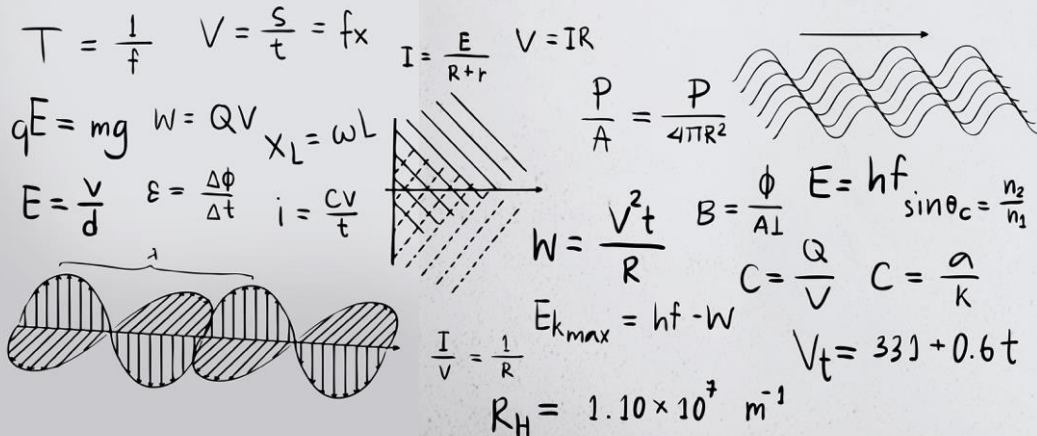 T = 1/f
V = s/t = fx
I = E/(R+r)
V = IR
qE = mg
W = QV
X_L = ωL
P/A = P/(4πR²)
E = V/d
ε = ΔΦ/Δt
i = CV/t
W = V²t/R
B = ϕ/A⊥
E = hf
sinθ_c = n₂/n₁
λ
C = Q/V
C = a/K
E_kmax = hf - W
V_t = 331 + 0.6t
I/V = 1/R
R_H = 1.10 × 10⁷ m⁻¹